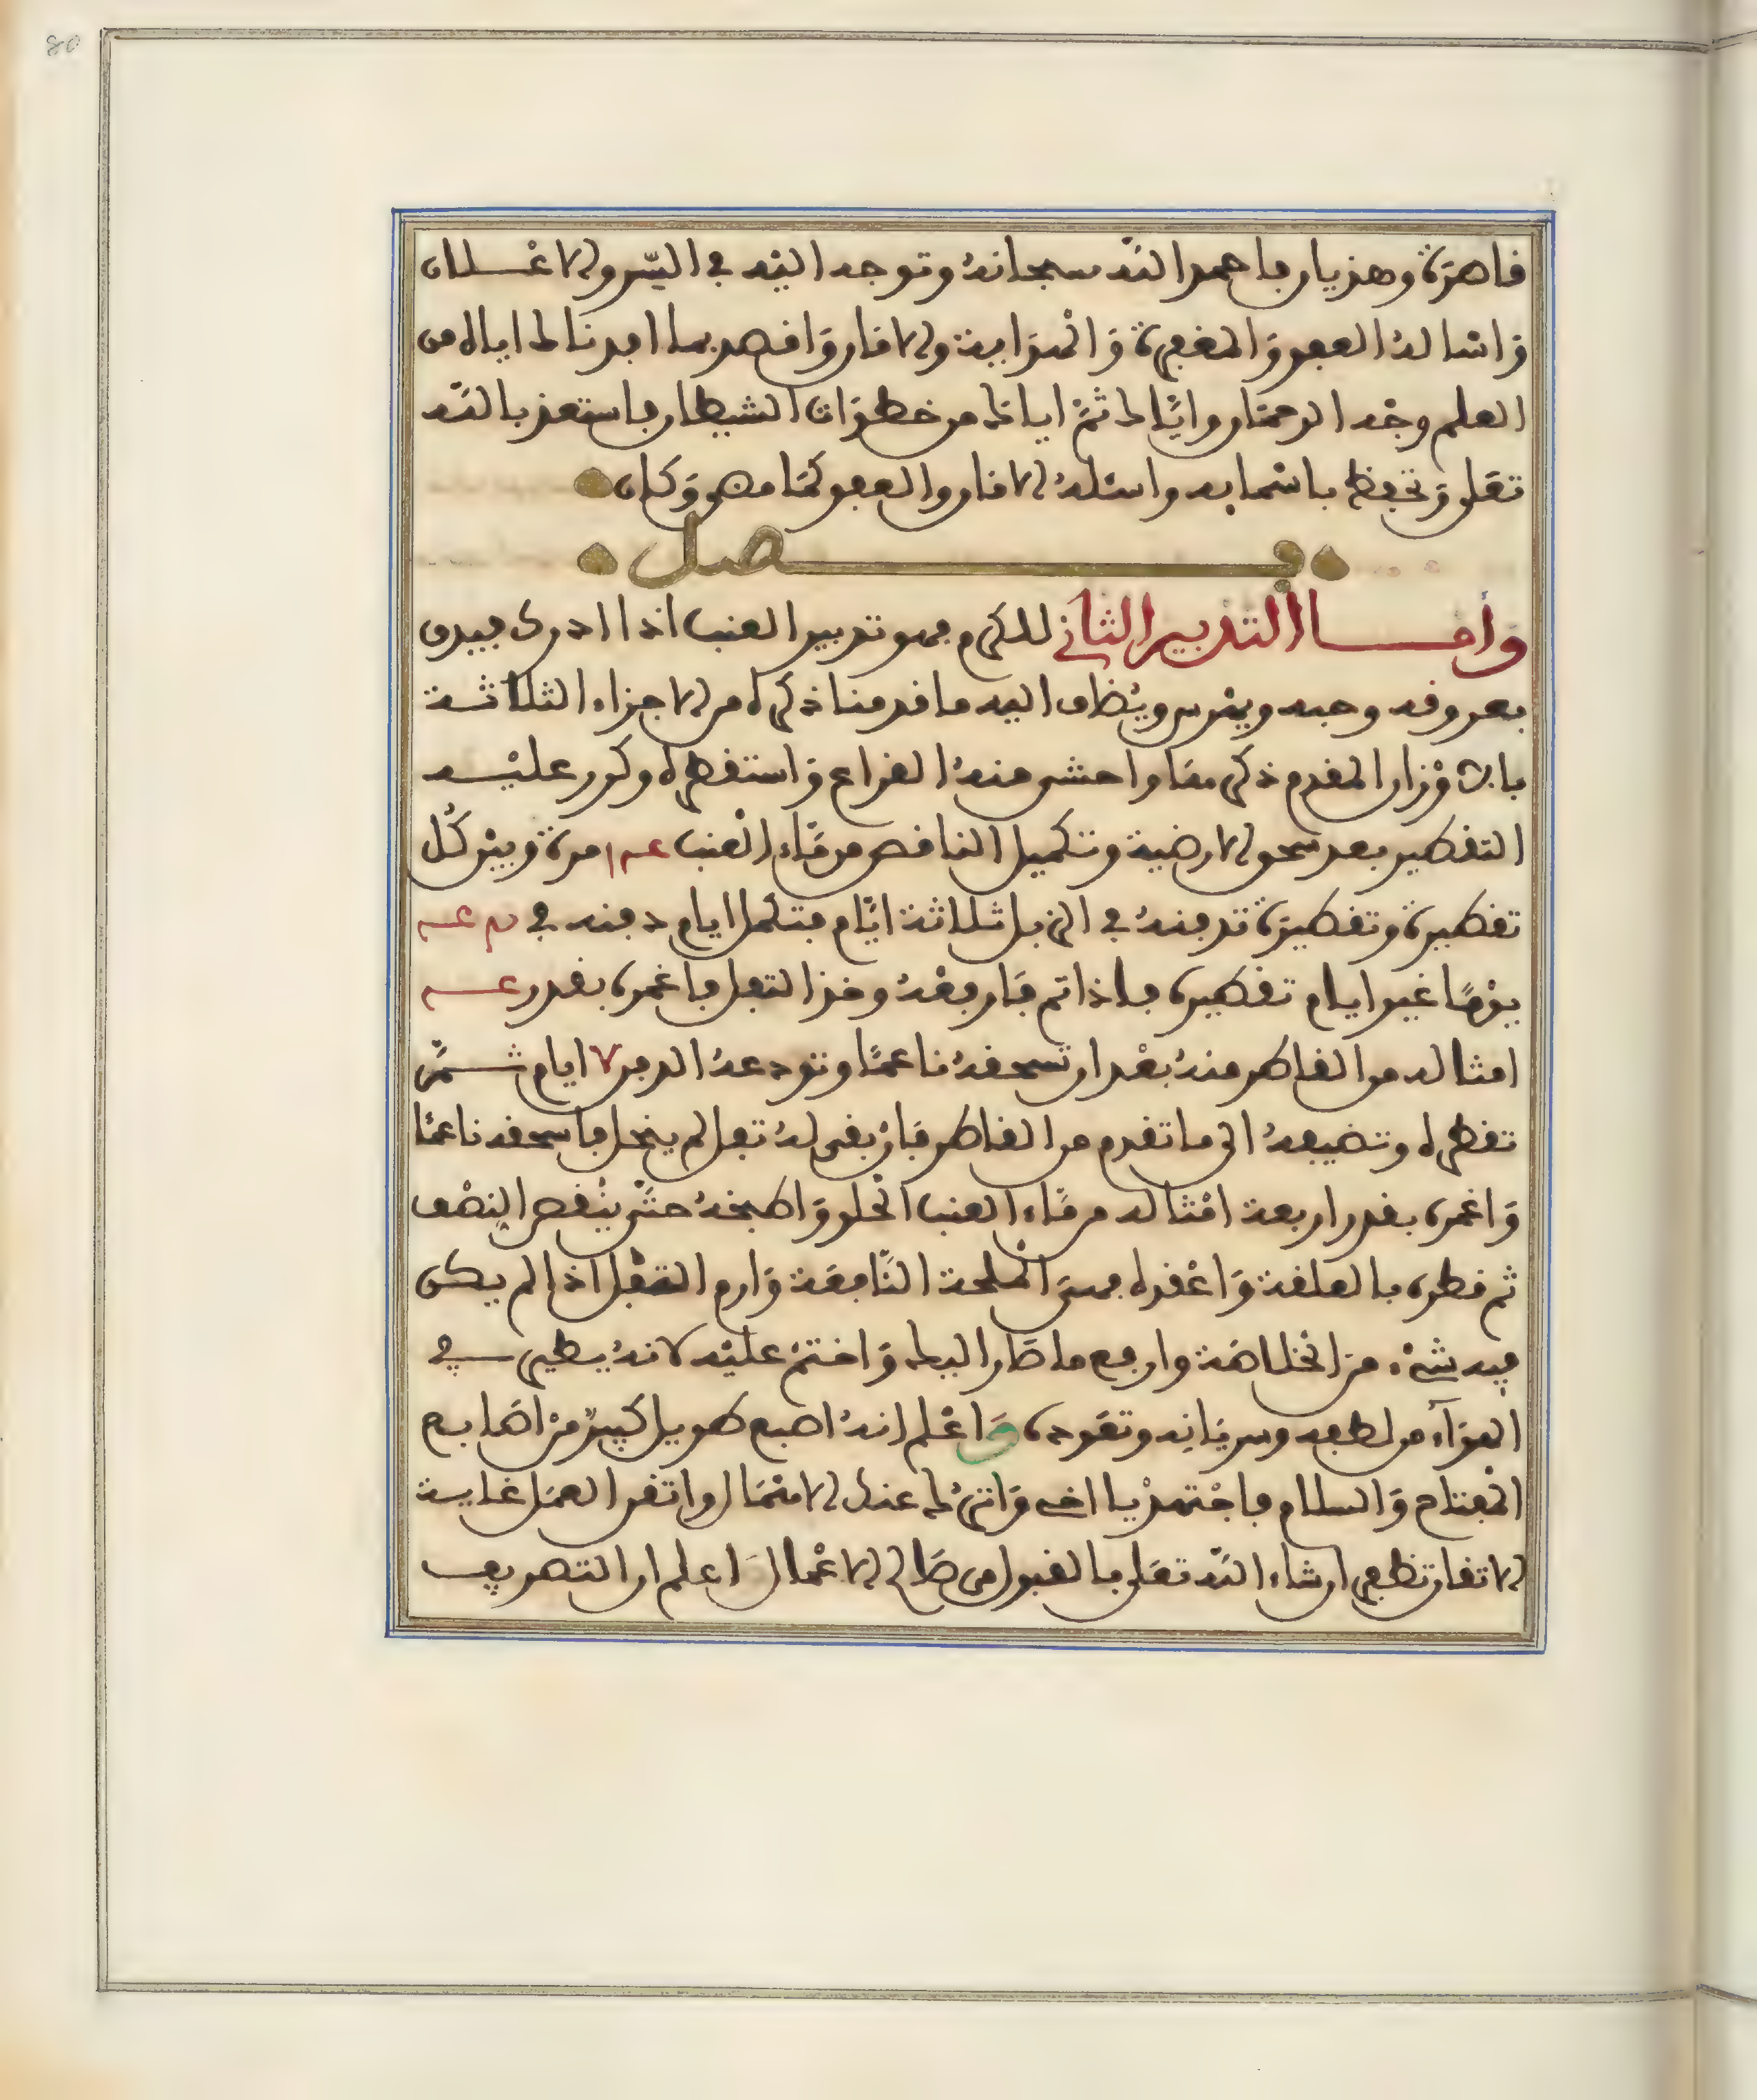 80
قاهرة وهزيان فاحمد الله سبحانه وتوجه اليه في السر والاعلان
واسأله العفو والمغفرة والموابة والامان واقصد بما ابدنا لك اياه من
العلم وجه الرحمان واياك ثم اياك من خطرات الشيطان فاستعذ بالله
تعلى وتحفظ باسمايه واسئله الامان والعفو كما هو وكان
فصل
واما التدبير الثاني للكرم فهو تدبير العنب اذا ادرك فيدق
بعروقه وحبه ويمرس ويضاف اليه ما قدمنا ذكره من الاجزاء الثلاثة
بالاوزان المقدم ذكرها واحش منه القراع واستقطره وكرر عليه
التقطير بعد سحق الارضية وتكميل الناقص من ماء العنب مرة وبين كل
تقطيرة وتقطيرة تدفنه في الزبل ثلاثة ايام فتكمل ايام دفنه في
يوما غير ايام تقطيره فاذا تم فارفعه وخذ التفل فاغمره بقدر
امثاله من القاطر منه بعد ان تسحقه ناعما وتودعه الدفن ٧ ايام ثم
تقطره وتضيفه الى ما تقدم من القاطر فان بقي له تفل لم ينحل فاسحقه ناعما
واغمره بقدر اربعة امثاله من ماء العنب الحلو واطبخه حتى ينقص النصف
ثم قطره بالعلقة واعقده فهي الملحة النافعة وارم الثفل اذا لم يكن
فيه شيء من الخلاصة وارفع ما صار اليك واختم عليه لانه يطير في
الهواء من لطفه وسريانه ونفوذه واعلم انه اصبع طويل كبير من اصابع
المفتاح والسلام فاجتهد يا اخي واترك عنك الامهال واتقن العمل غاية
الاتقان تظفر ان شاء الله تعلى بالقبول من صالح الاعمال واعلم ان التصريف